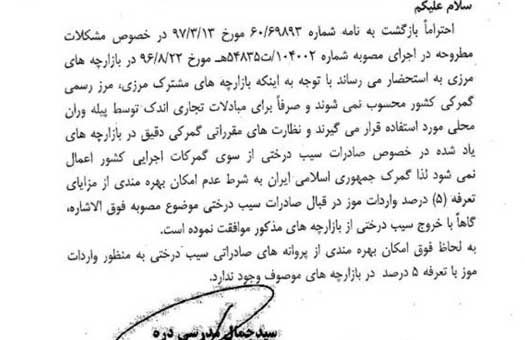 سلام علیکم
احتراماً بازگشت به نامه شماره ۶۰/۶۹۸۹۳ مورخ ۹۷/۳/۱۳ در خصوص مشکلات
مطروحه در اجرای مصوبه شماره ۱۰۴۰۰۲/ت۵۴۸۳۵هـ مورخ ۹۶/۸/۲۲ در بازارچه های
مرزی به استحضار می رساند با توجه به اینکه بازارچه های مشترک مرزی، مرز رسمی
گمرکی کشور محسوب نمی شوند و صرفاً برای مبادلات تجاری اندک توسط پیله وران
محلی مورد استفاده قرار می گیرند و نظارت های مقرراتی گمرکی دقیق در بازارچه های
یاد شده در خصوص صادرات سیب درختی از سوی گمرکات اجرایی کشور اعمال
نمی شود لذا گمرک جمهوری اسلامی ایران به شرط عدم امکان بهره مندی از مزایای
تعرفه (۵) درصد واردات موز در قبال صادرات سیب درختی موضوع مصوبه فوق الاشاره،
گاهاً با خروج سیب درختی از بازارچه های مذکور موافقت نموده است.
به لحاظ فوق امکان بهره مندی از پروانه های صادراتی سیب درختی به منظور واردات
موز با تعرفه ۵ درصد در بازارچه های موصوف وجود ندارد.
سیدجمال مدرسی دره